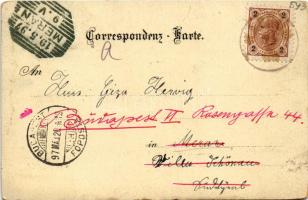 19.5.97
MERAN
9.V
Correspondenz-Karte.
2
2
An
Herrn Géza Herwig
Budapest VI Rosengasse 44.
in Meran
Villa Schönau
Südtyrol
BUDAPEST
97 MAJ 20